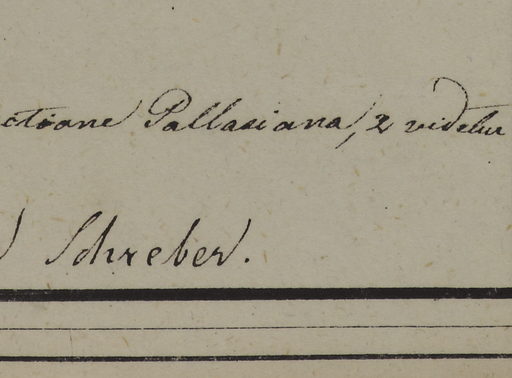 ctione Pallasiana, & videtur
) Schreber.